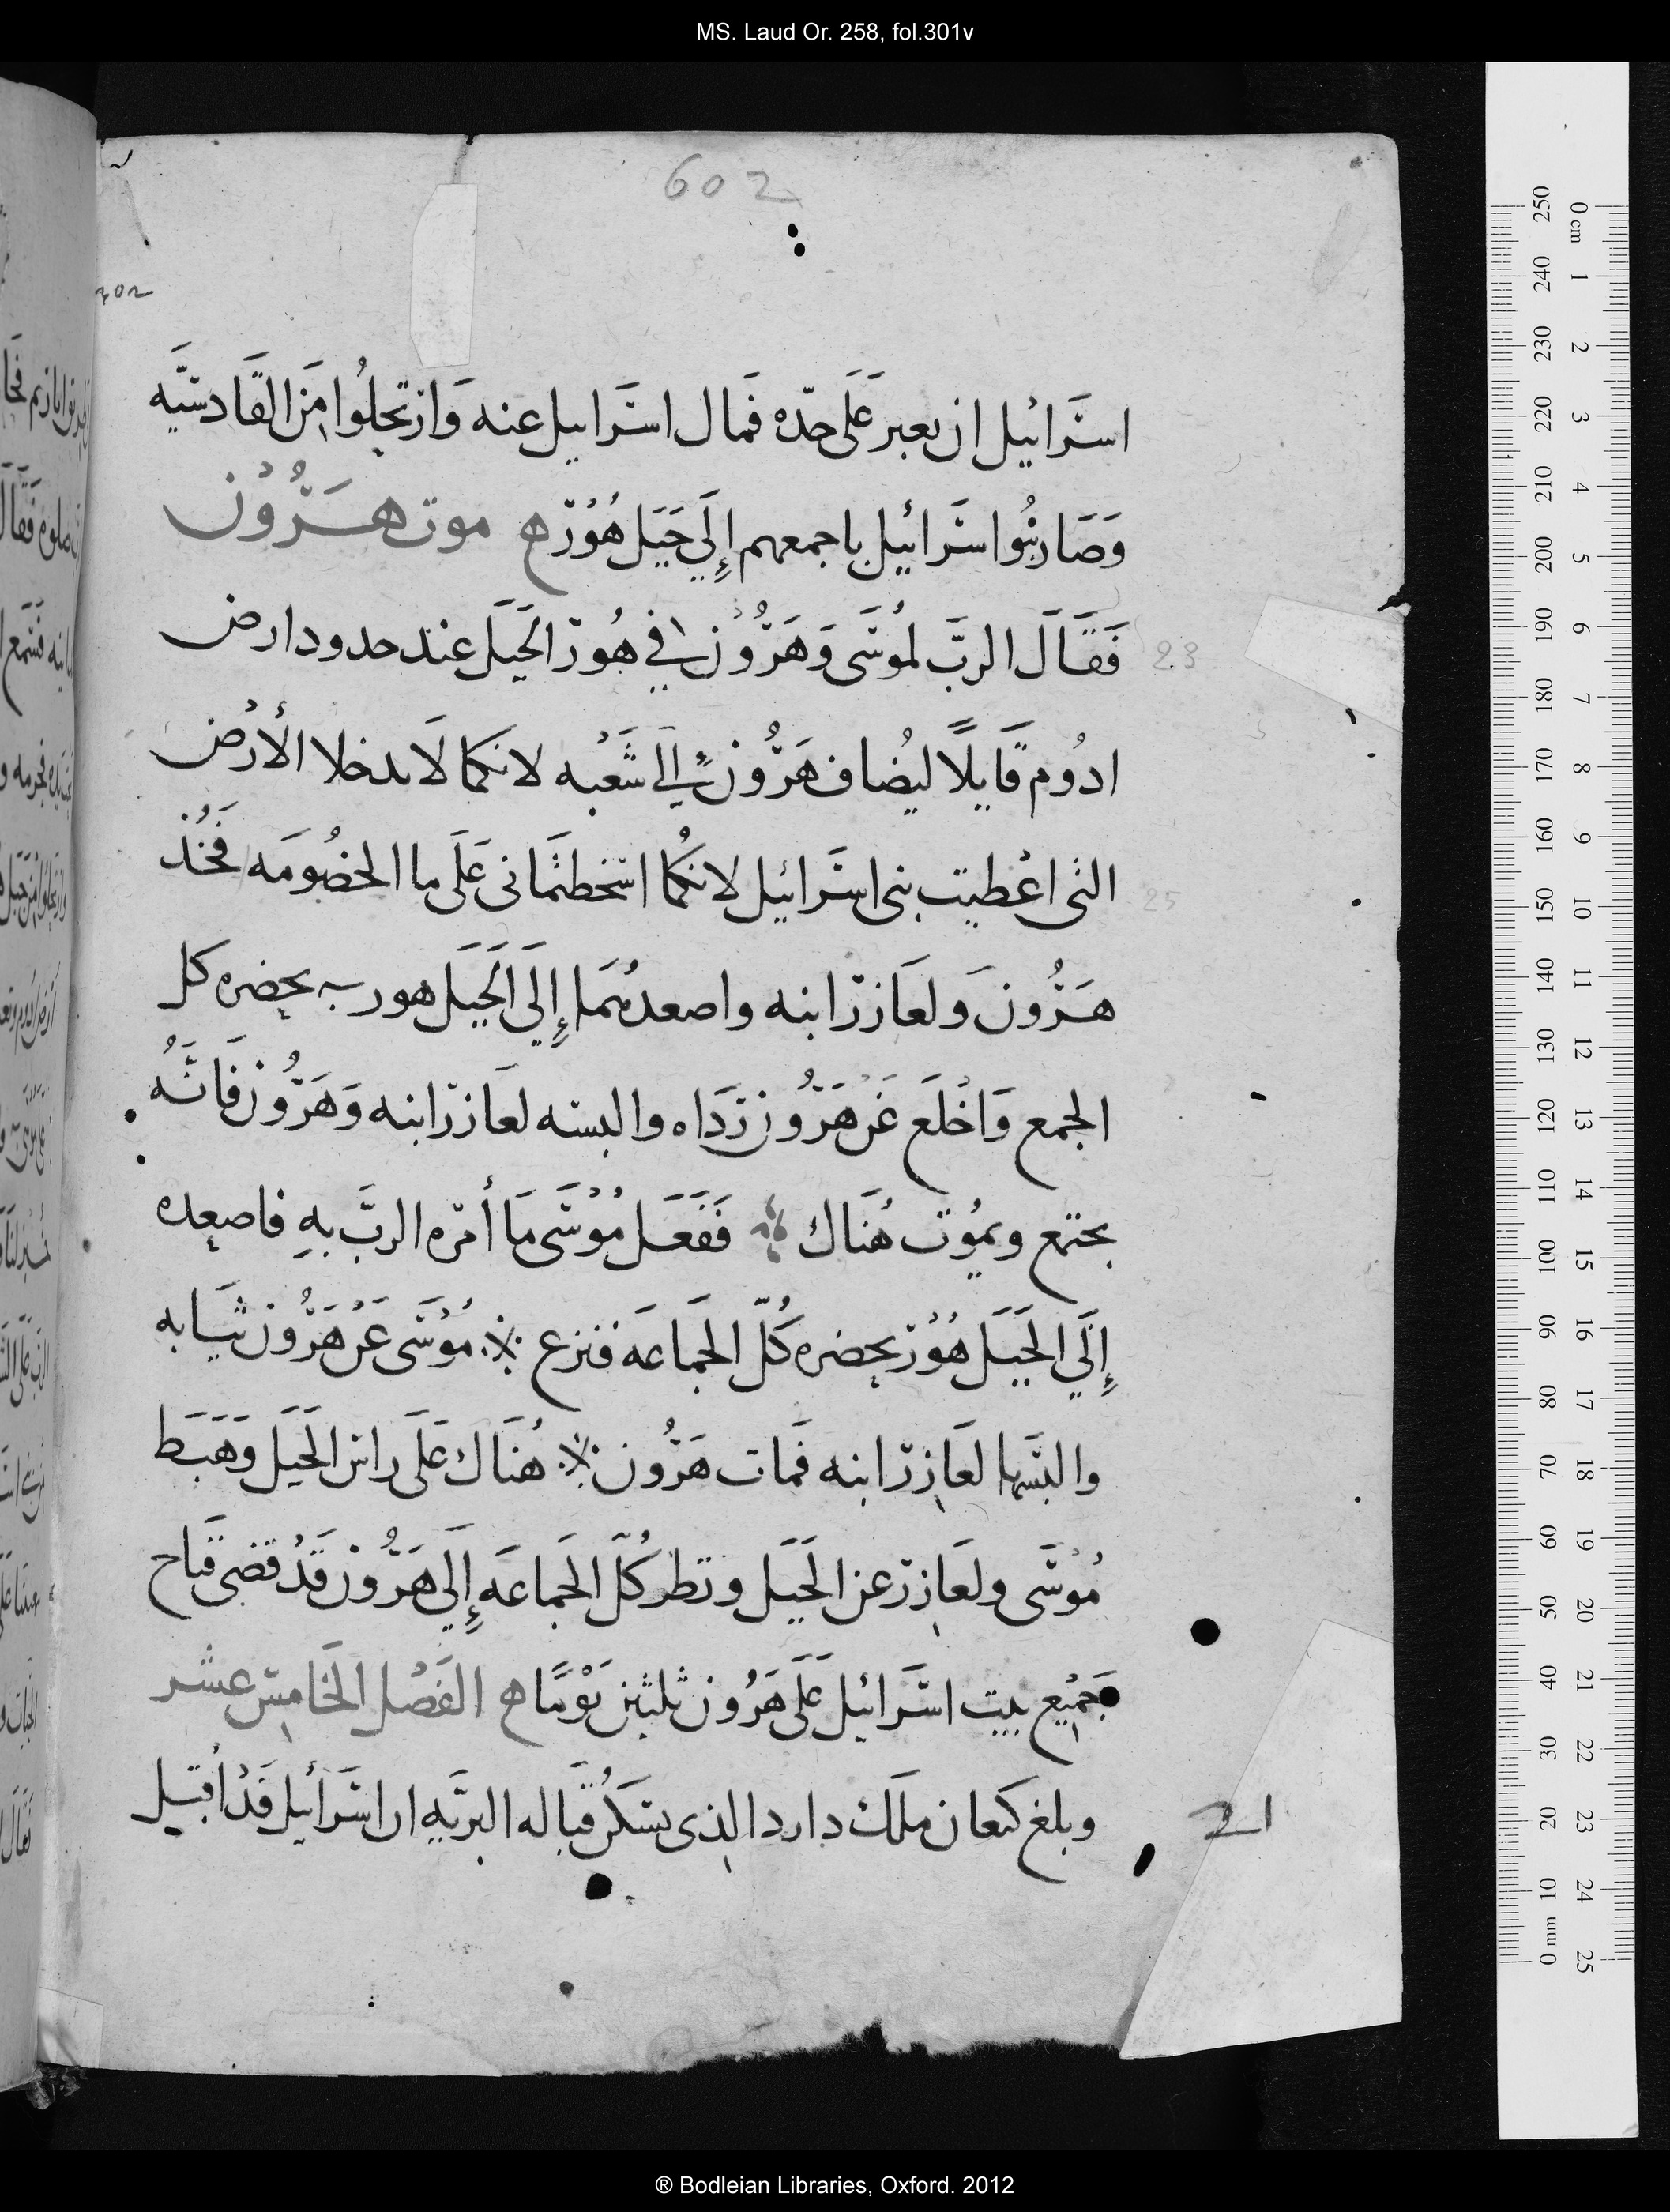 MS. Laud Or. 258, fol.301v
602
302
اسرَائيل ان يعبر عَلَى حدّه فَمال اسرَاييل عنه وَارتحلُوا مِنَ القَادسيَّه
وَصَار بنُوا اسرَائيل باجمعهم إِلَي جَبَل هُوْر ه موت هَرُوْن
23
فَقَالَ الربَّ لموُسَى وَهَرُوْن في هُور الجَبَل عند حدود ارض
ادُوم قَايلًا ليُضاف هَرُّون الَي شَعْبه لانكما لَا يدخلا الأرْض
25
التى اعْطيت بنى اسرَائيل لانكُما اسخطتمَانى عَلَى ما الخصُومَه فَخُذ
هَرُونَ ولعَازر ابنه واصعدهُمَا إِلَي الجَبَل هور بحضره كل
الجمع وَاخْلَع عَن هَرُون رَدَاه والبسه لعَازر ابنه وَهَرُون فَانَّهُ
يجتمع ويمُوت هُنَاك فَفَعَل مُوْسَى مَا أمَره الربَّ بهِ فاصعده
إِلَي الجَبَل هُوْر بحضره كُلّ الجَمَاعَه فنزع مُوْسَى عَن هَرُّون ثيَابه
والبسَها لعَازِر ابنه فَمات هَرُون هُنَاك عَلَى راس الجَبَل وَهَبَط
مُوْسَى ولعَازِر عن الجَبَل ونظر كُلّ الجَماعَه إِلَي هَرُّون قَدْ قضى فَنَاح
جَميْع بيت اسرَائيل عَلَى هَرُون ثلثين يَوْمًا ه الفَصْل الخَامِس عشر
21
وبلغ كنعان ملك دارد الذى يسكُن قبَاله البريَّه ان اسرَأئيل قَدْ أقبَل
® Bodleian Libraries, Oxford. 2012